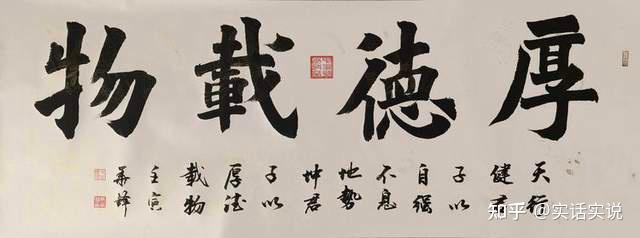 厚德載物
天行
健君
子以
自强
不息
地勢
坤君
子以
厚德
载物
壬寅
知乎 @实话实说